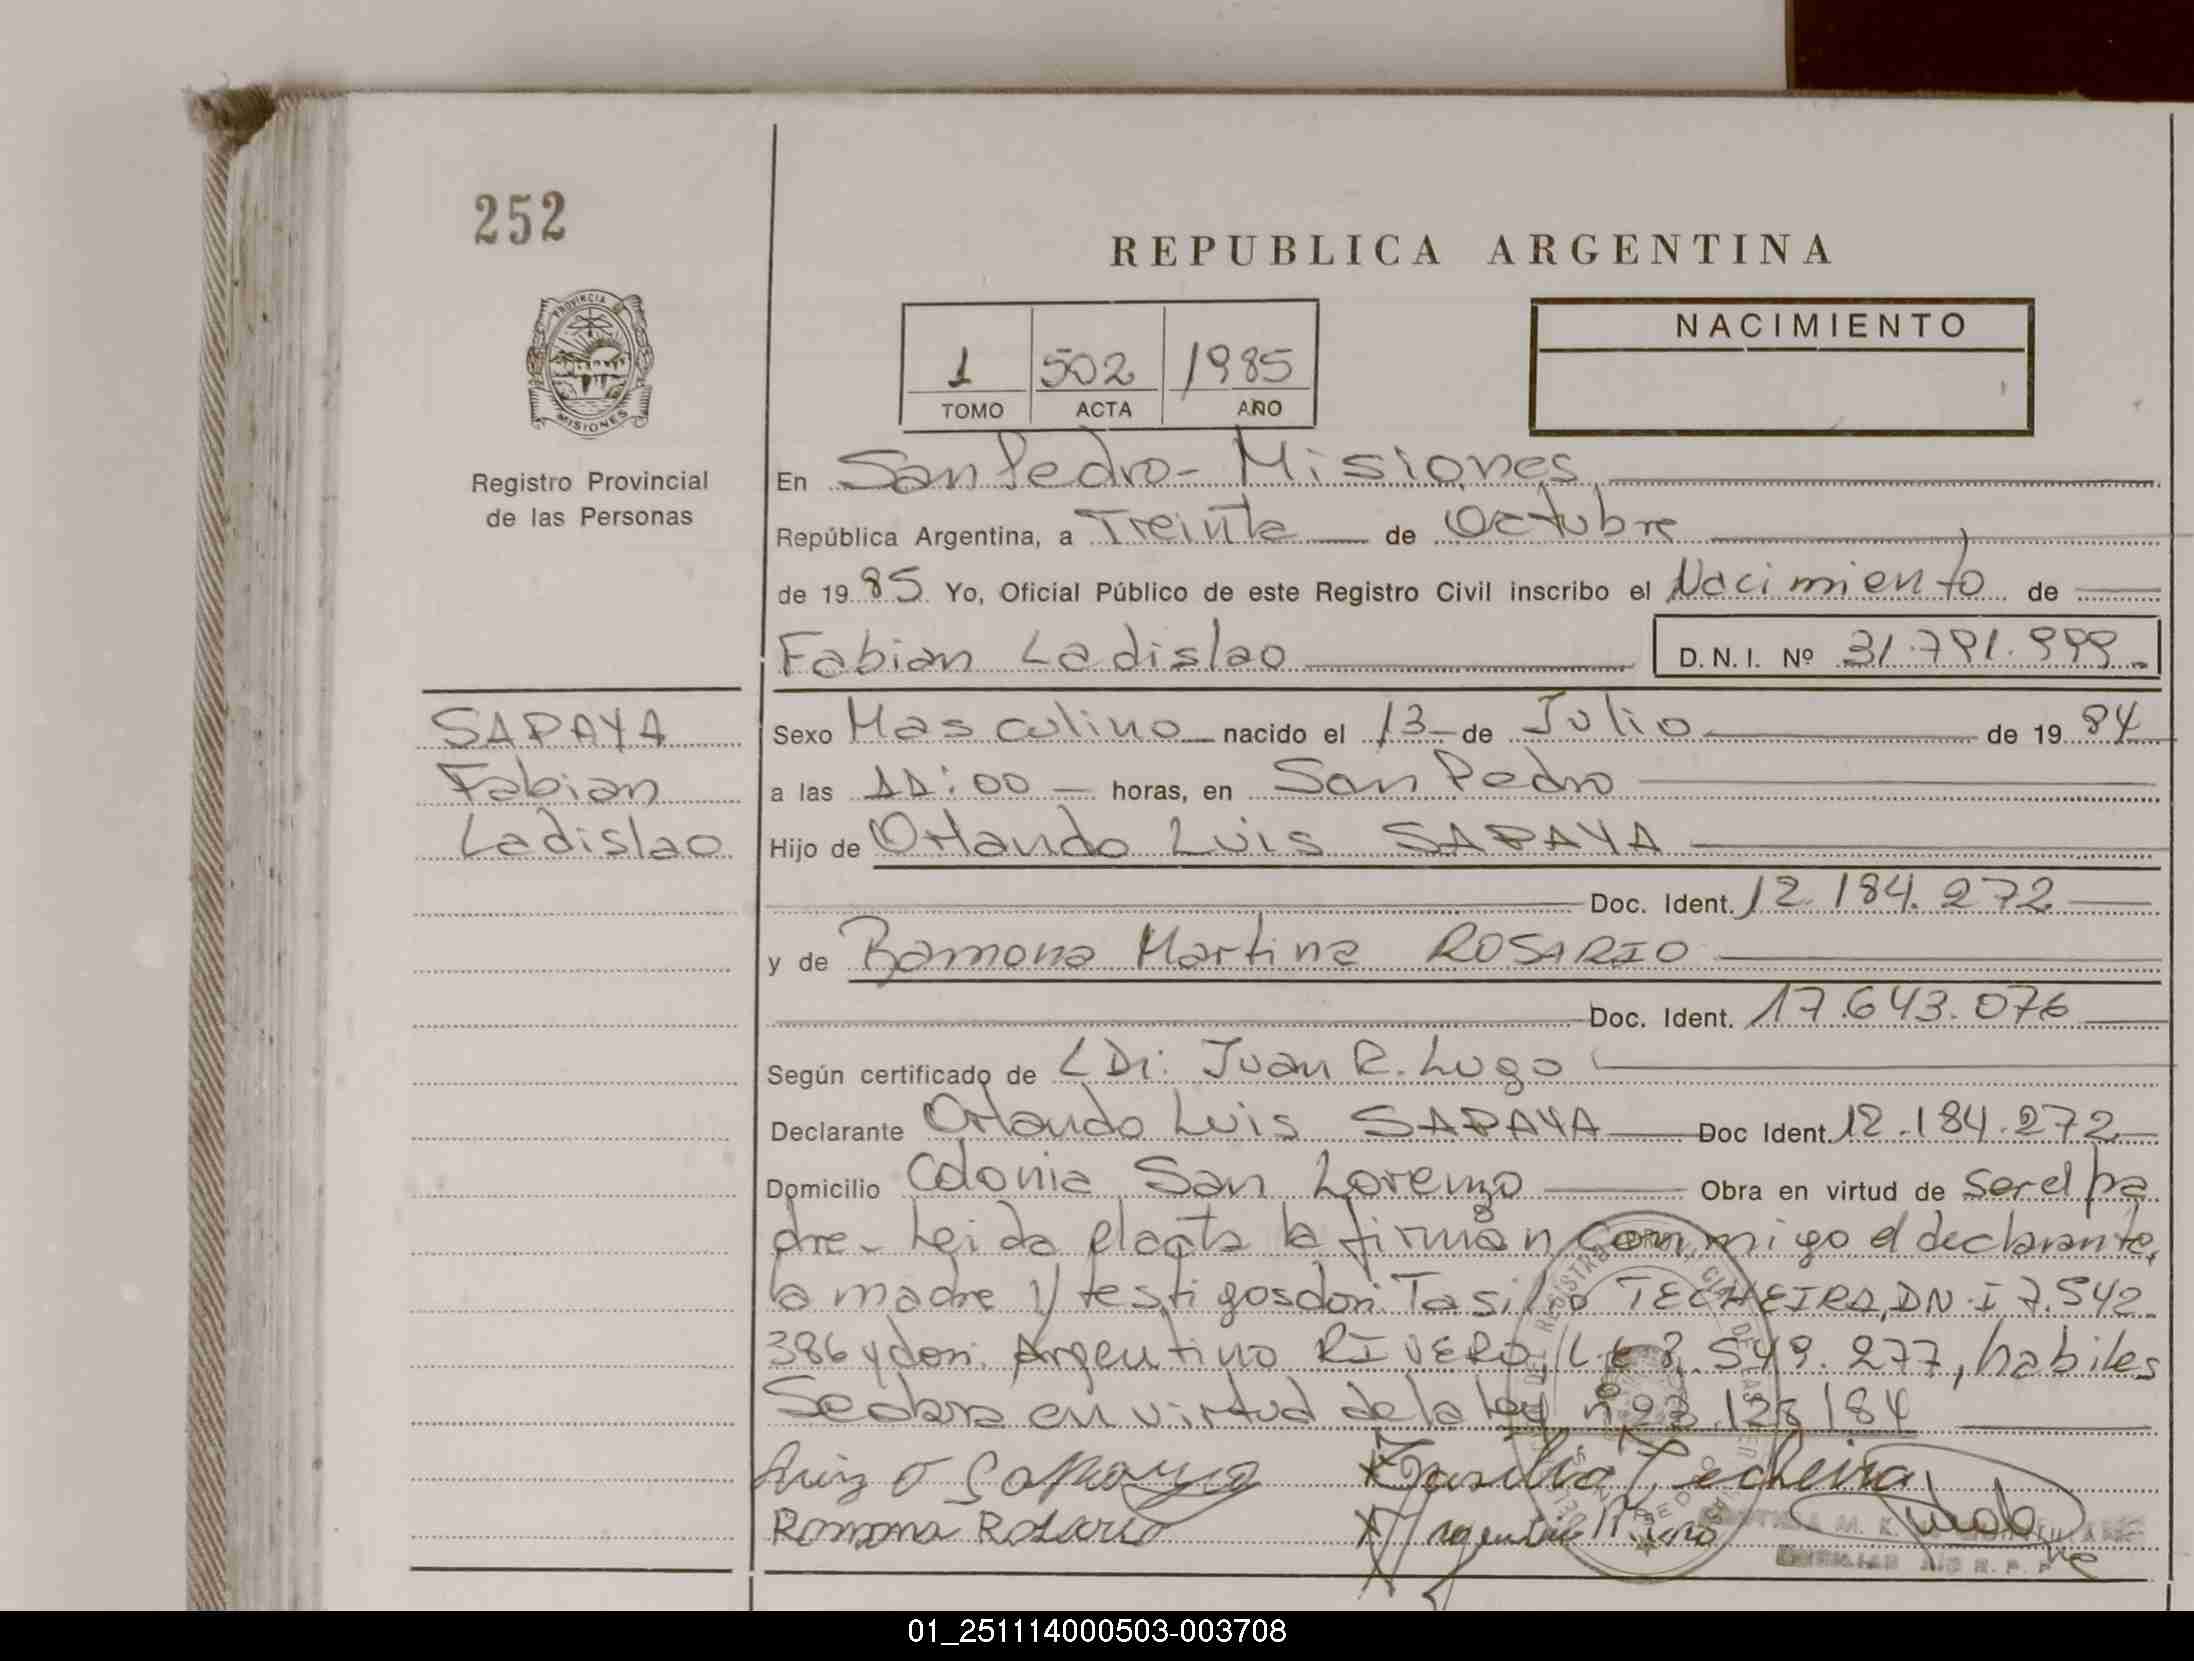 252
REPUBLICA ARGENTINA
PROVINCIA
MISIONES
Registro Provincial
de las Personas
1 502 1985
TOMO ACTA AÑO
NACIMIENTO
En San Pedro - Misiones
República Argentina, a Treinta de Octubre
de 1985 Yo, Oficial Público de este Registro Civil inscribo el Nacimiento de
Fabian Ladislao D.N.I. Nº 31.791.999
SAPAYA
Fabian
Ladislao
Sexo Masculino nacido el 13 de Julio de 1984
a las 11:00 horas, en San Pedro
Hijo de Orlando Luis SAPAYA
Doc. Ident. 12.184.272
y de Ramona Martina ROSARIO
Doc. Ident. 17.643.076
Según certificado de Juan R. Lugo
Declarante Orlando Luis SAPAYA Doc Ident. 12.184.272
Domicilio Colonia San Lorenzo Obra en virtud de ser el pa
dre - Leida el acta la firman conmigo el declarante,
la madre y testigos don Tasilio TECHEIRA, DN.I 7.542
386 y don Argentino RIVERO, L.E 8.549.277, habiles
Se labra en virtud de la ley nº 23.128/84
Luiz O Sapaya Tasilio Techeira
Ramona Rosario Argentino Rivero
01_251114000503-003708